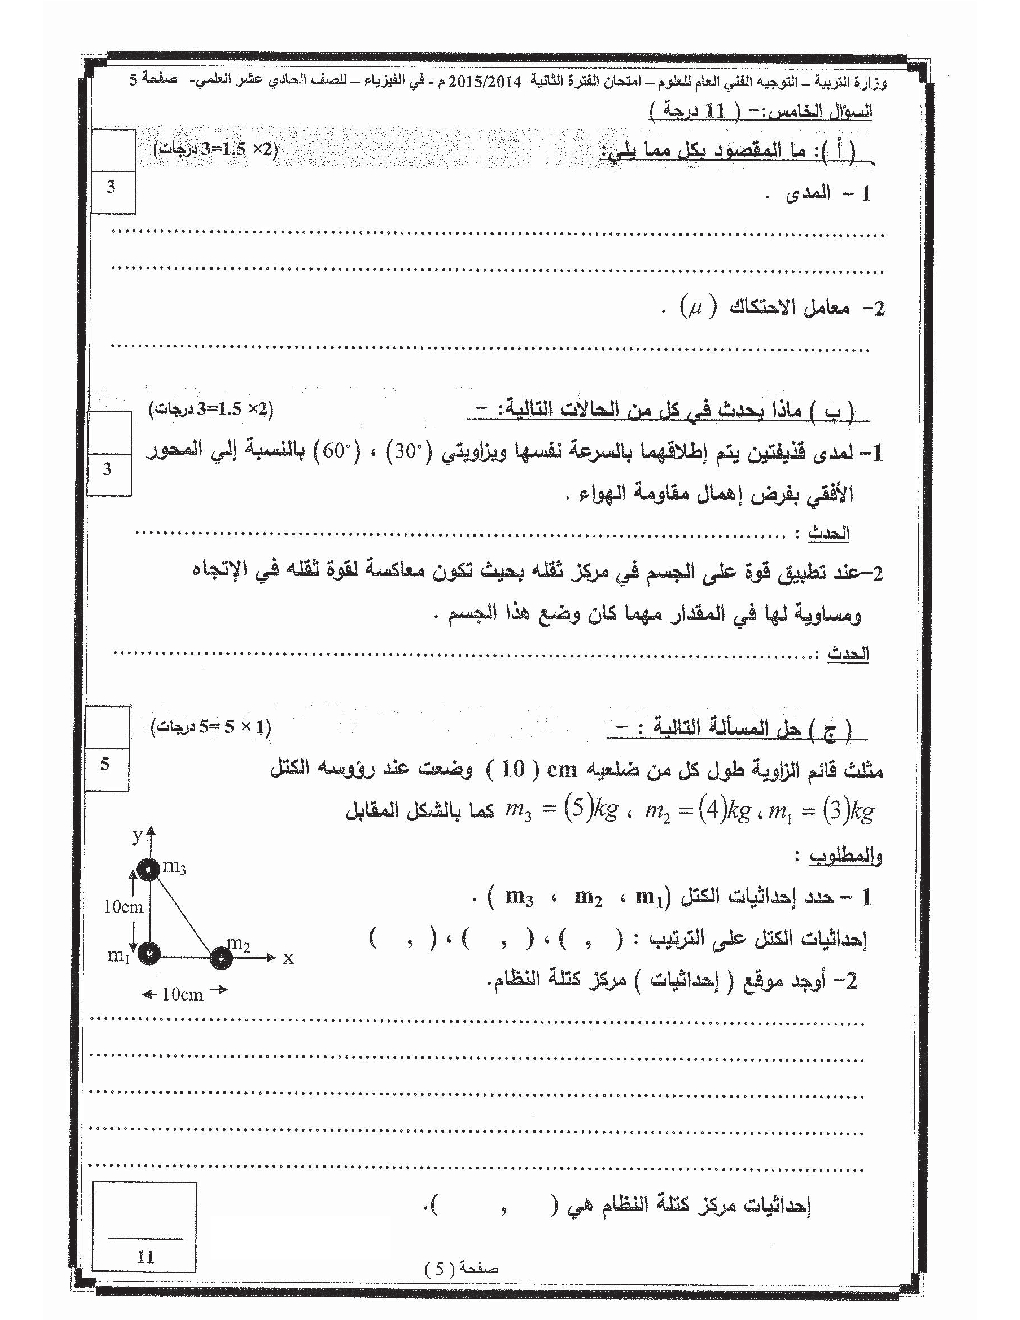 وزارة التربية – التوجيه الفني العام للعلوم – امتحان الفترة الثانية 2015/2014 م - في الفيزياء – للصف الحادي عشر العلمي- صفحة 5
السؤال الخامس:- ( 11 درجة )
( أ ): ما المقصود بكل مما يلي: (2× 1.5=3 درجات)
3
1 - المدى .
2- معامل الاحتكاك (μ) .
( ب ) ماذا يحدث في كل من الحالات التالية: - (2× 1.5=3 درجات)
3
1- لمدى قذيفتين يتم إطلاقهما بالسرعة نفسها وبزاويتي (30°) ، (60°) بالنسبة إلي المحور
الأفقي بفرض إهمال مقاومة الهواء .
الحدث :
2-عند تطبيق قوة على الجسم في مركز ثقله بحيث تكون معاكسة لقوة ثقله في الإتجاه
ومساوية لها في المقدار مهما كان وضع هذا الجسم .
الحدث :
( ج ) حل المسألة التالية : - (1 × 5 =5 درجات)
5
مثلث قائم الزاوية طول كل من ضلعيه cm ( 10 ) وضعت عند رؤوسه الكتل
m1 = (3)kg ، m2 = (4)kg ، m3 = (5)kg كما بالشكل المقابل
والمطلوب :
1 - حدد إحداثيات الكتل (m1 ، m2 ، m3 ) .
إحداثيات الكتل على الترتيب : ( , ) ، ( , ) ، ( , )
2- أوجد موقع ( إحداثيات ) مركز كتلة النظام.
y
m3
10cm
m1
m2
x
10cm
إحداثيات مركز كتلة النظام هي ( , ).
11
صفحة ( 5 )